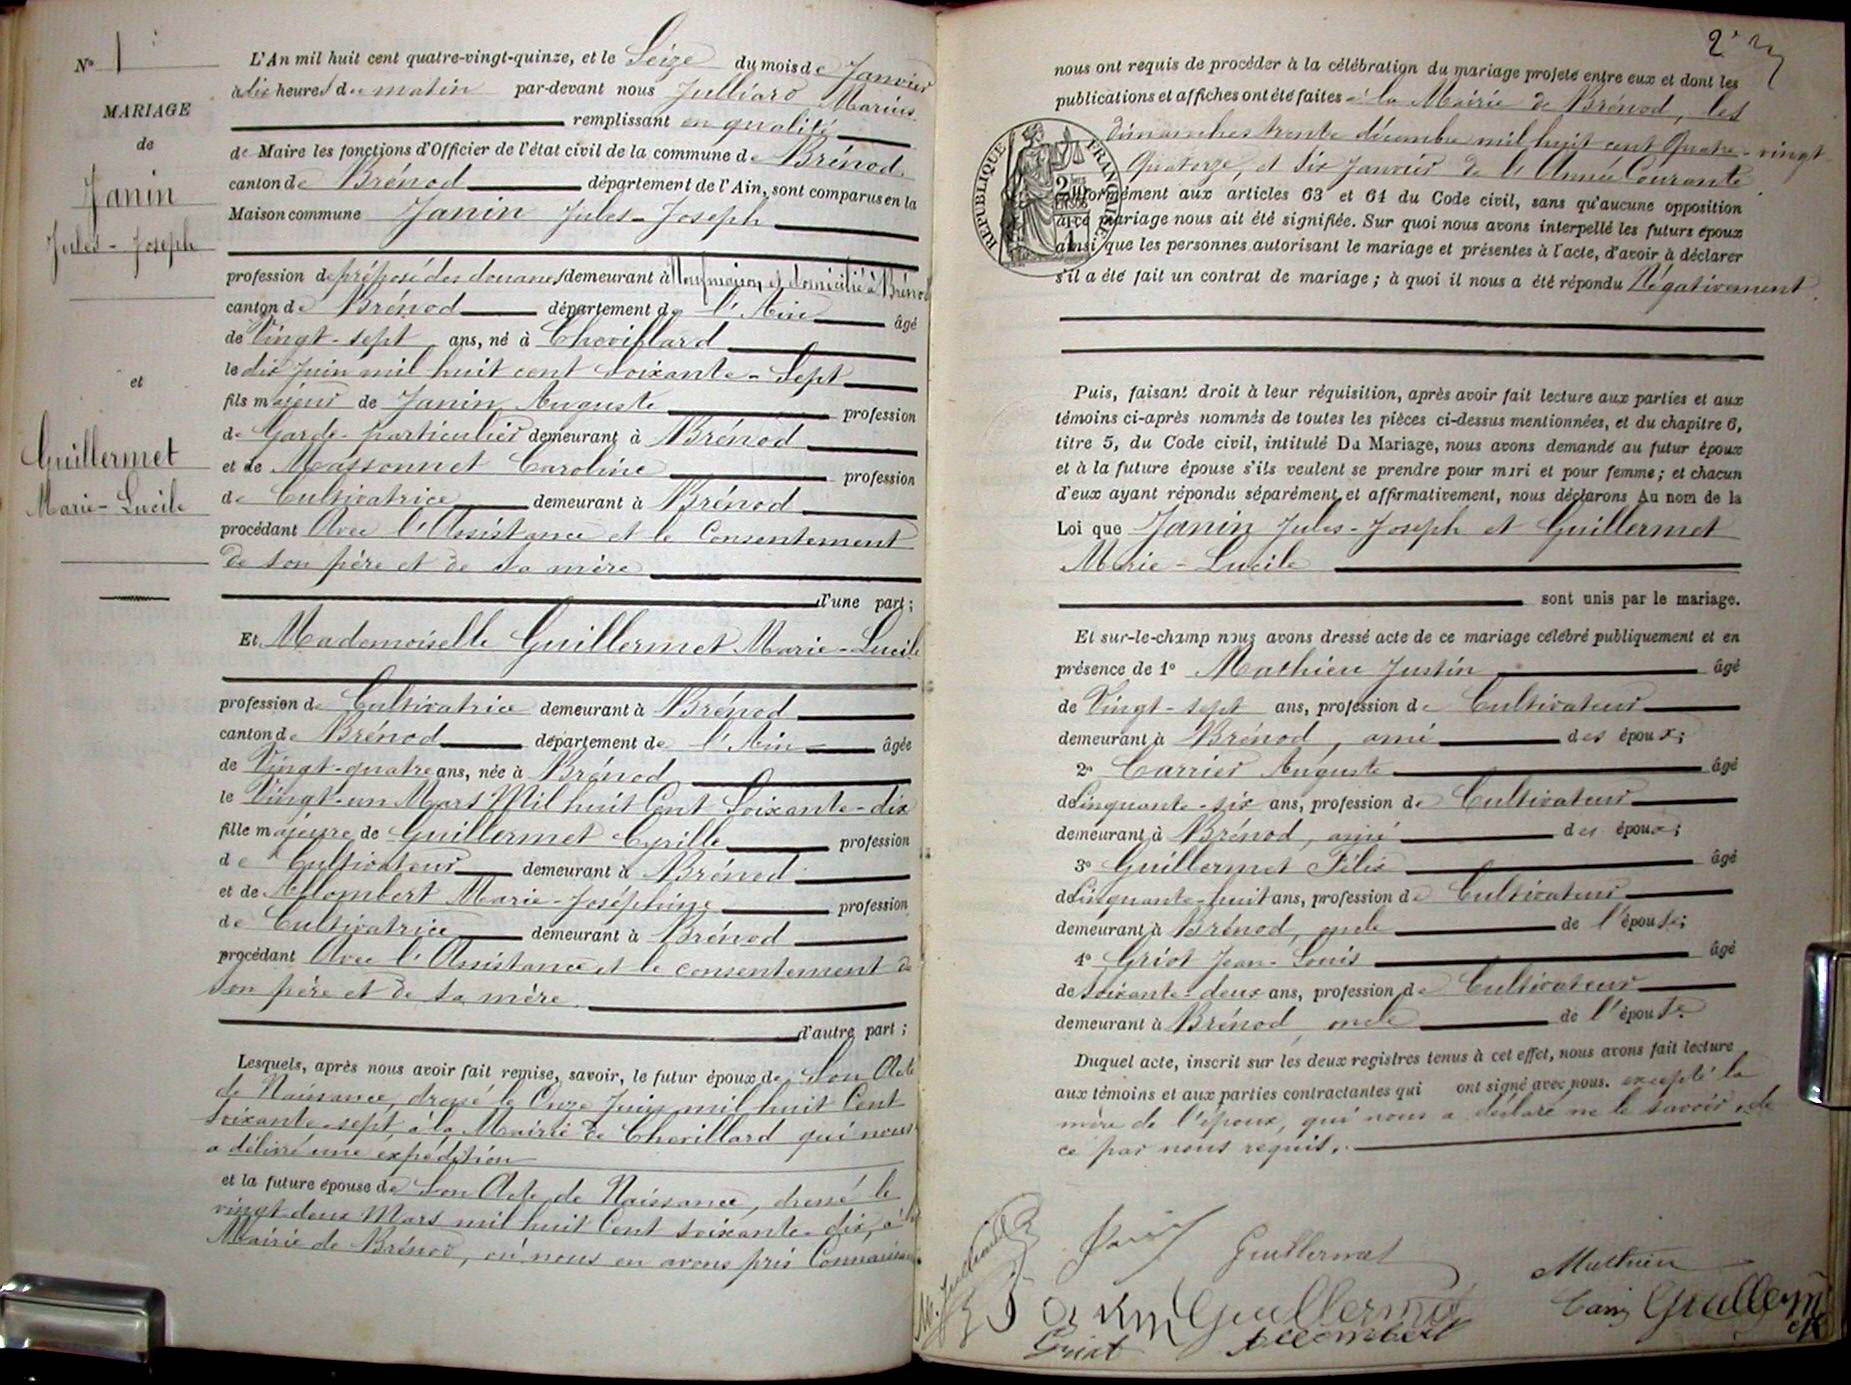 N° 1
MARIAGE
de
Janin
Jules-Joseph
et
Guillermet
Marie-Lucile
L'An mil huit cent quatre-vingt-quinze, et le Seize du mois de Janvier
à dix heures du matin par-devant nous Julliard Marius
remplissant en qualité
de Maire les fonctions d'Officier de l'état civil de la commune de Brénod
canton de Brénod département de l'Ain, sont comparus en la
Maison commune Janin Jules-Joseph
profession de préposé des douanes demeurant à et domicilié à Brénod
canton de Brénod département de l'Ain âgé
de Vingt-sept ans, né à Chevillard
le dix Juin mil huit cent soixante-Sept
fils majeur de Janin Auguste profession
de Garde-particulier demeurant à Brénod
et de Massonnet Caroline profession
de Cultivatrice demeurant à Brénod
procédant Avec l'Assistance et le Consentement
de son père et de sa mère
d'une part;
Et Mademoiselle Guillermet Marie-Lucile
profession de Cultivatrice demeurant à Brénod
canton de Brénod département de l'Ain âgée
de Vingt-quatre ans, née à Brénod
le Vingt-un Mars Mil huit Cent Soixante-dix
fille majeure de Guillermet Cyrille profession
de Cultivateur demeurant à Brénod
et de Allombert Marie-Joséphine profession
de Cultivatrice demeurant à Brénod
procédant Avec l'Assistance et le consentement de
son père et de sa mère
d'autre part;
Lesquels, après nous avoir fait remise, savoir, le futur époux de Son Acte
de Naissance, dressé le Onze Juin mil huit Cent
soixante-sept à la Mairie de Chevillard qui nous
a délivré une expédition
et la future épouse de Son Acte de Naissance, dressé le
vingt deux Mars mil huit Cent soixante-dix, à la
Mairie de Brénod, où nous en avons pris Connaissance.
2
nous ont requis de procéder à la célébration du mariage projeté entre eux et dont les
publications et affiches ont été faites à la Mairie de Brénod, les
dimanches trente décembre mil huit cent Quatre-vingt
Quatorze, et Six Janvier de l'Année Courante
conformément aux articles 63 et 64 du Code civil, sans qu'aucune opposition
à ce mariage nous ait été signifiée. Sur quoi nous avons interpellé les futurs époux
ainsi que les personnes autorisant le mariage et présentes à l'acte, d'avoir à déclarer
s'il a été fait un contrat de mariage; à quoi il nous a été répondu Négativement.
RÉPUBLIQUE FRANÇAISE
Puis, faisant droit à leur réquisition, après avoir fait lecture aux parties et aux
témoins ci-après nommés de toutes les pièces ci-dessus mentionnées, et du chapitre 6,
titre 5, du Code civil, intitulé Du Mariage, nous avons demandé au futur époux
et à la future épouse s'ils veulent se prendre pour mari et pour femme; et chacun
d'eux ayant répondu séparément et affirmativement, nous déclarons Au nom de la
Loi que Janin Jules-Joseph et Guillermet
Marie-Lucile
sont unis par le mariage.
Et sur-le-champ nous avons dressé acte de ce mariage célébré publiquement et en
présence de 1° Mathieu Justin âgé
de Vingt-sept ans, profession de Cultivateur
demeurant à Brénod, ami des époux;
2° Carrier Auguste âgé
de Cinquante-six ans, profession de Cultivateur
demeurant à Brénod, ami des époux;
3° Guillermet Félix âgé
de Cinquante-huit ans, profession de Cultivateur
demeurant à Brénod, oncle de l'épouse;
4° Griot Jean-Louis âgé
de soixante-deux ans, profession de Cultivateur
demeurant à Brénod, oncle de l'épouse.
Duquel acte, inscrit sur les deux registres tenus à cet effet, nous avons fait lecture
aux témoins et aux parties contractantes qui ont signé avec nous. excepté la
mère de l'époux, qui nous a déclaré ne le savoir, de
ce par nous requis.
Guillermet
Mathieu
Janin
Guillermet
Guillermet
Griot
Allombert